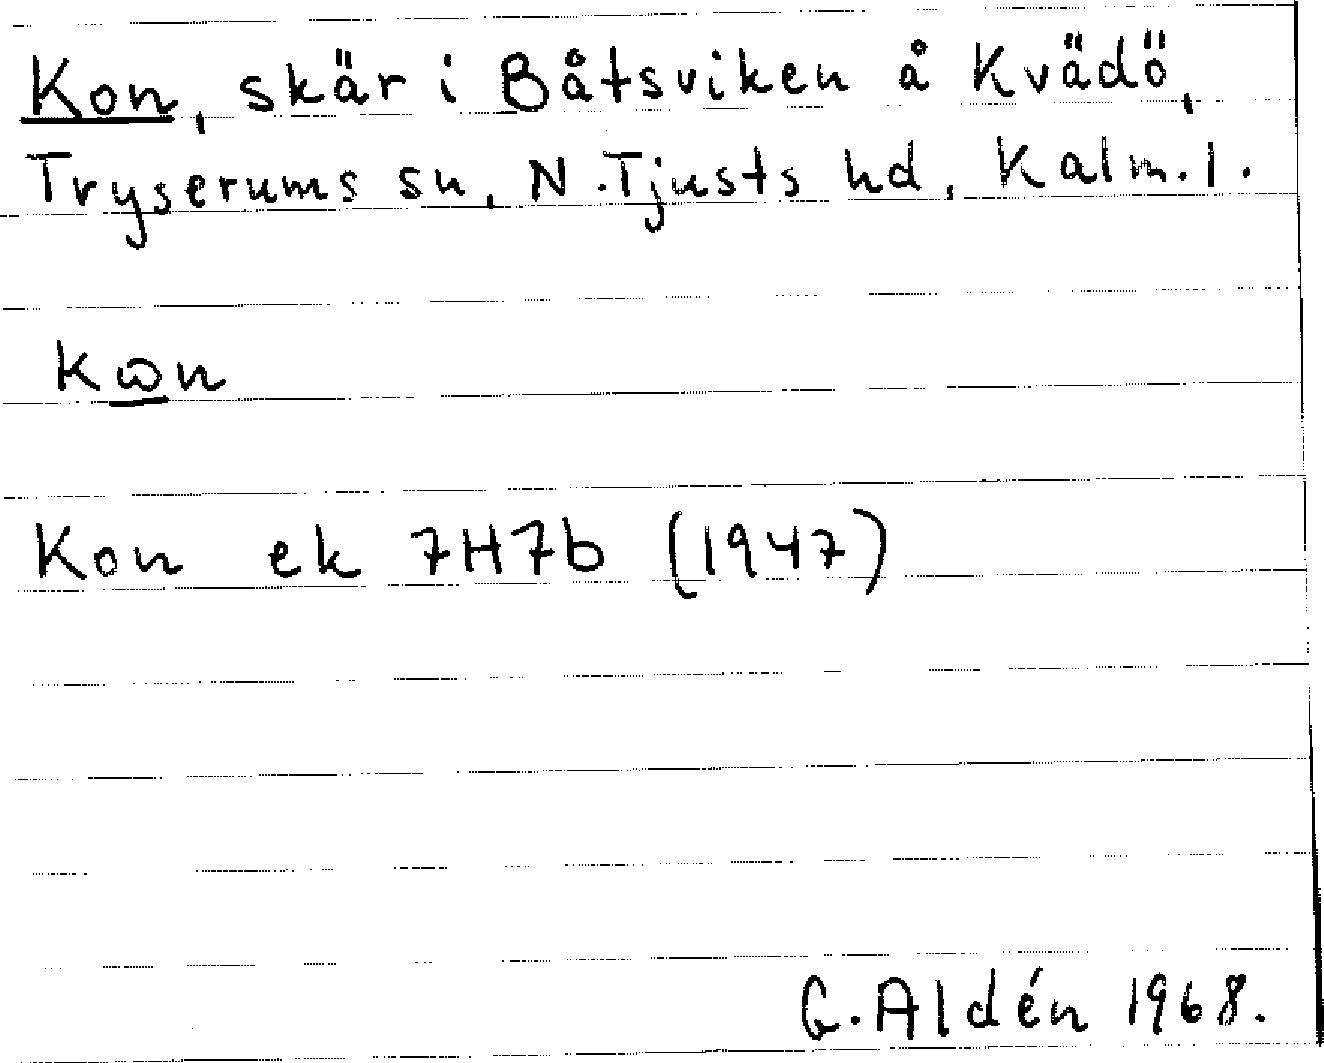 Kon, skär i Båtsviken å Kvädö,
Tryserums sn, N. Tjusts hd, Kalm. l.
kωn
Kon ek 7H7b (1947)
G. Aldén 1968.